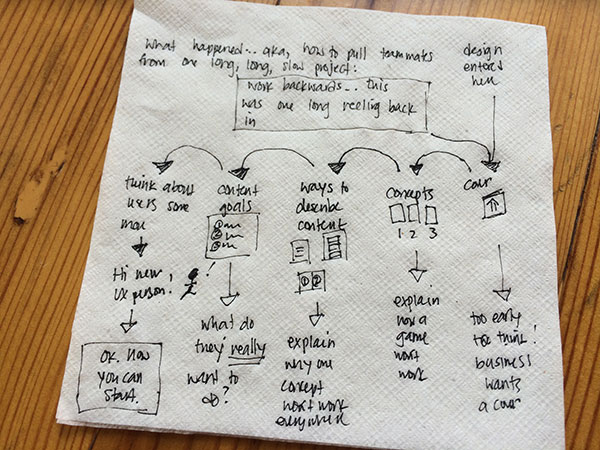 What happened... aka, how to pull teammates
from one long, long, slow project:
design
entered
here
work backwards... this
was one long reeling back
in
think about
users some
more
Hi new,
UX person!
OK. now
you can
start.
content
goals
1
2
3
what do
they really
want to
do?
ways to
describe
content
1 2
explain
why one
concept
won't work
everywhere
concepts
1 2 3
explain
how a
game
won't
work
cover
too early
to think!
business
wants
a cover